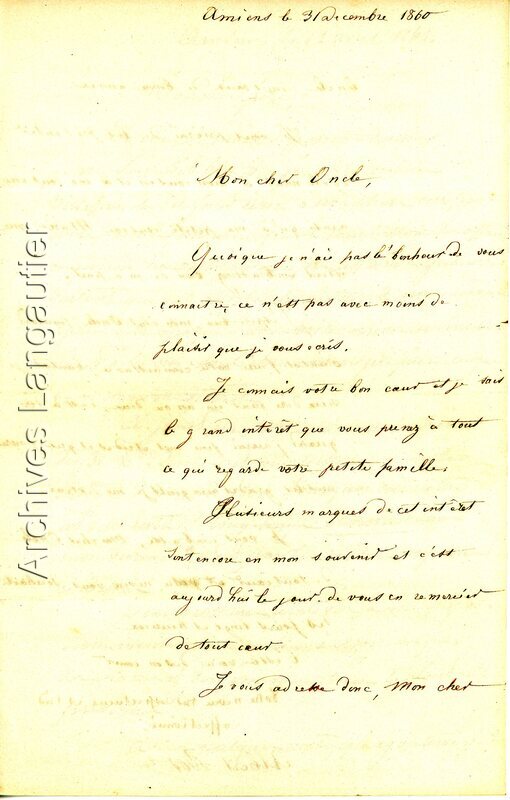 Amiens le 31 Decembre 1860
Mon cher Oncle,
Quoique je n'ais pas le bonheur de vous
connaitre, ce n'est pas avec moins de
plaisir que je vous ecris.
Je connais votre bon cœur et je sais
le grand interêt que vous prenez à tout
ce qui regarde votre petite famille.
Plusieurs marques de cet interêt
sont encore en mon souvenir et c'est
aujourd'hui le jour de vous en remercier
de tout cœur
Je vous adresse donc, Mon cher
Archives Langautier